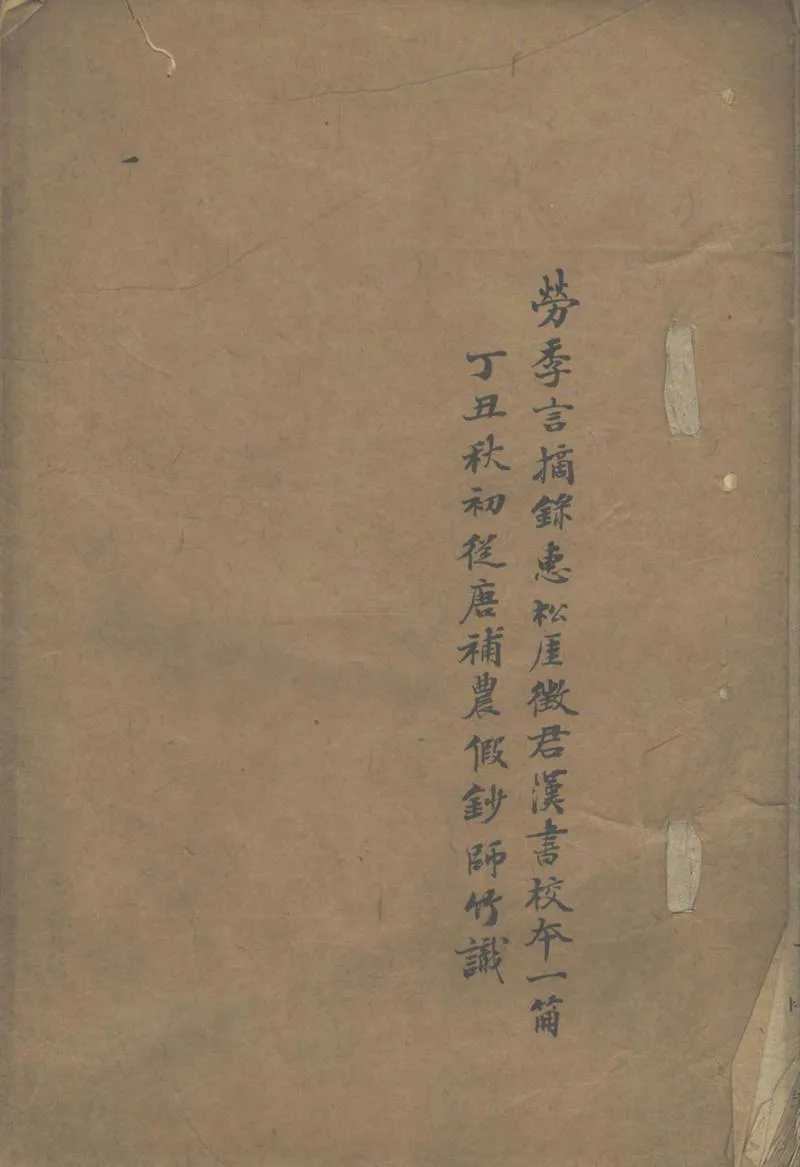 勞季言摘錄惠松厓徵君漢書校本一篇
丁丑秋初從唐補農假鈔師竹識